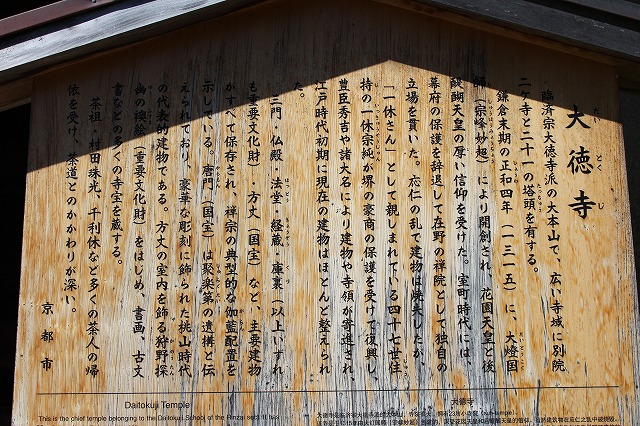 大徳寺
だいとくじ
臨済宗大徳寺派の大本山で、広い寺域に別院
二ケ寺と二十一の塔頭を有する。
鎌倉末期の正和四年(一三一五)に、大燈国
師(宗峰妙超)により開創され、花園天皇と後
醍醐天皇の厚い信仰を受けた。室町時代には、
幕府の保護を辞退して在野の禅院として独自の
立場を貫いた。応仁の乱で建物は焼失したが、
「一休さん」として親しまれている四十七世住
持の一休宗純が堺の豪商の保護を受けて復興し、
豊臣秀吉や諸大名により建物や寺領が寄進され、
江戸時代初期に現在の建物はほとんど整えられ
た。
三門・仏殿・法堂・経蔵・庫裏(以上いずれ
も重要文化財)・方丈(国宝)など、主要建物
がすべて保存され、禅宗の典型的な伽藍配置を
示している。唐門(国宝)は聚楽第の遺構と伝
えられており、豪華な彫刻に飾られた桃山時代
の代表的建物である。方丈の室内を飾る狩野探
幽の襖絵(重要文化財)をはじめ、書画、古文
書などの多くの寺宝を蔵する。
茶祖・村田珠光、千利休など多くの茶人の帰
依を受け、茶道とのかかわりが深い。
京都市
Daitokuji Temple
This is the chief temple belonging to the Daitokuji School of the Rinzai sect. It has
大德寺